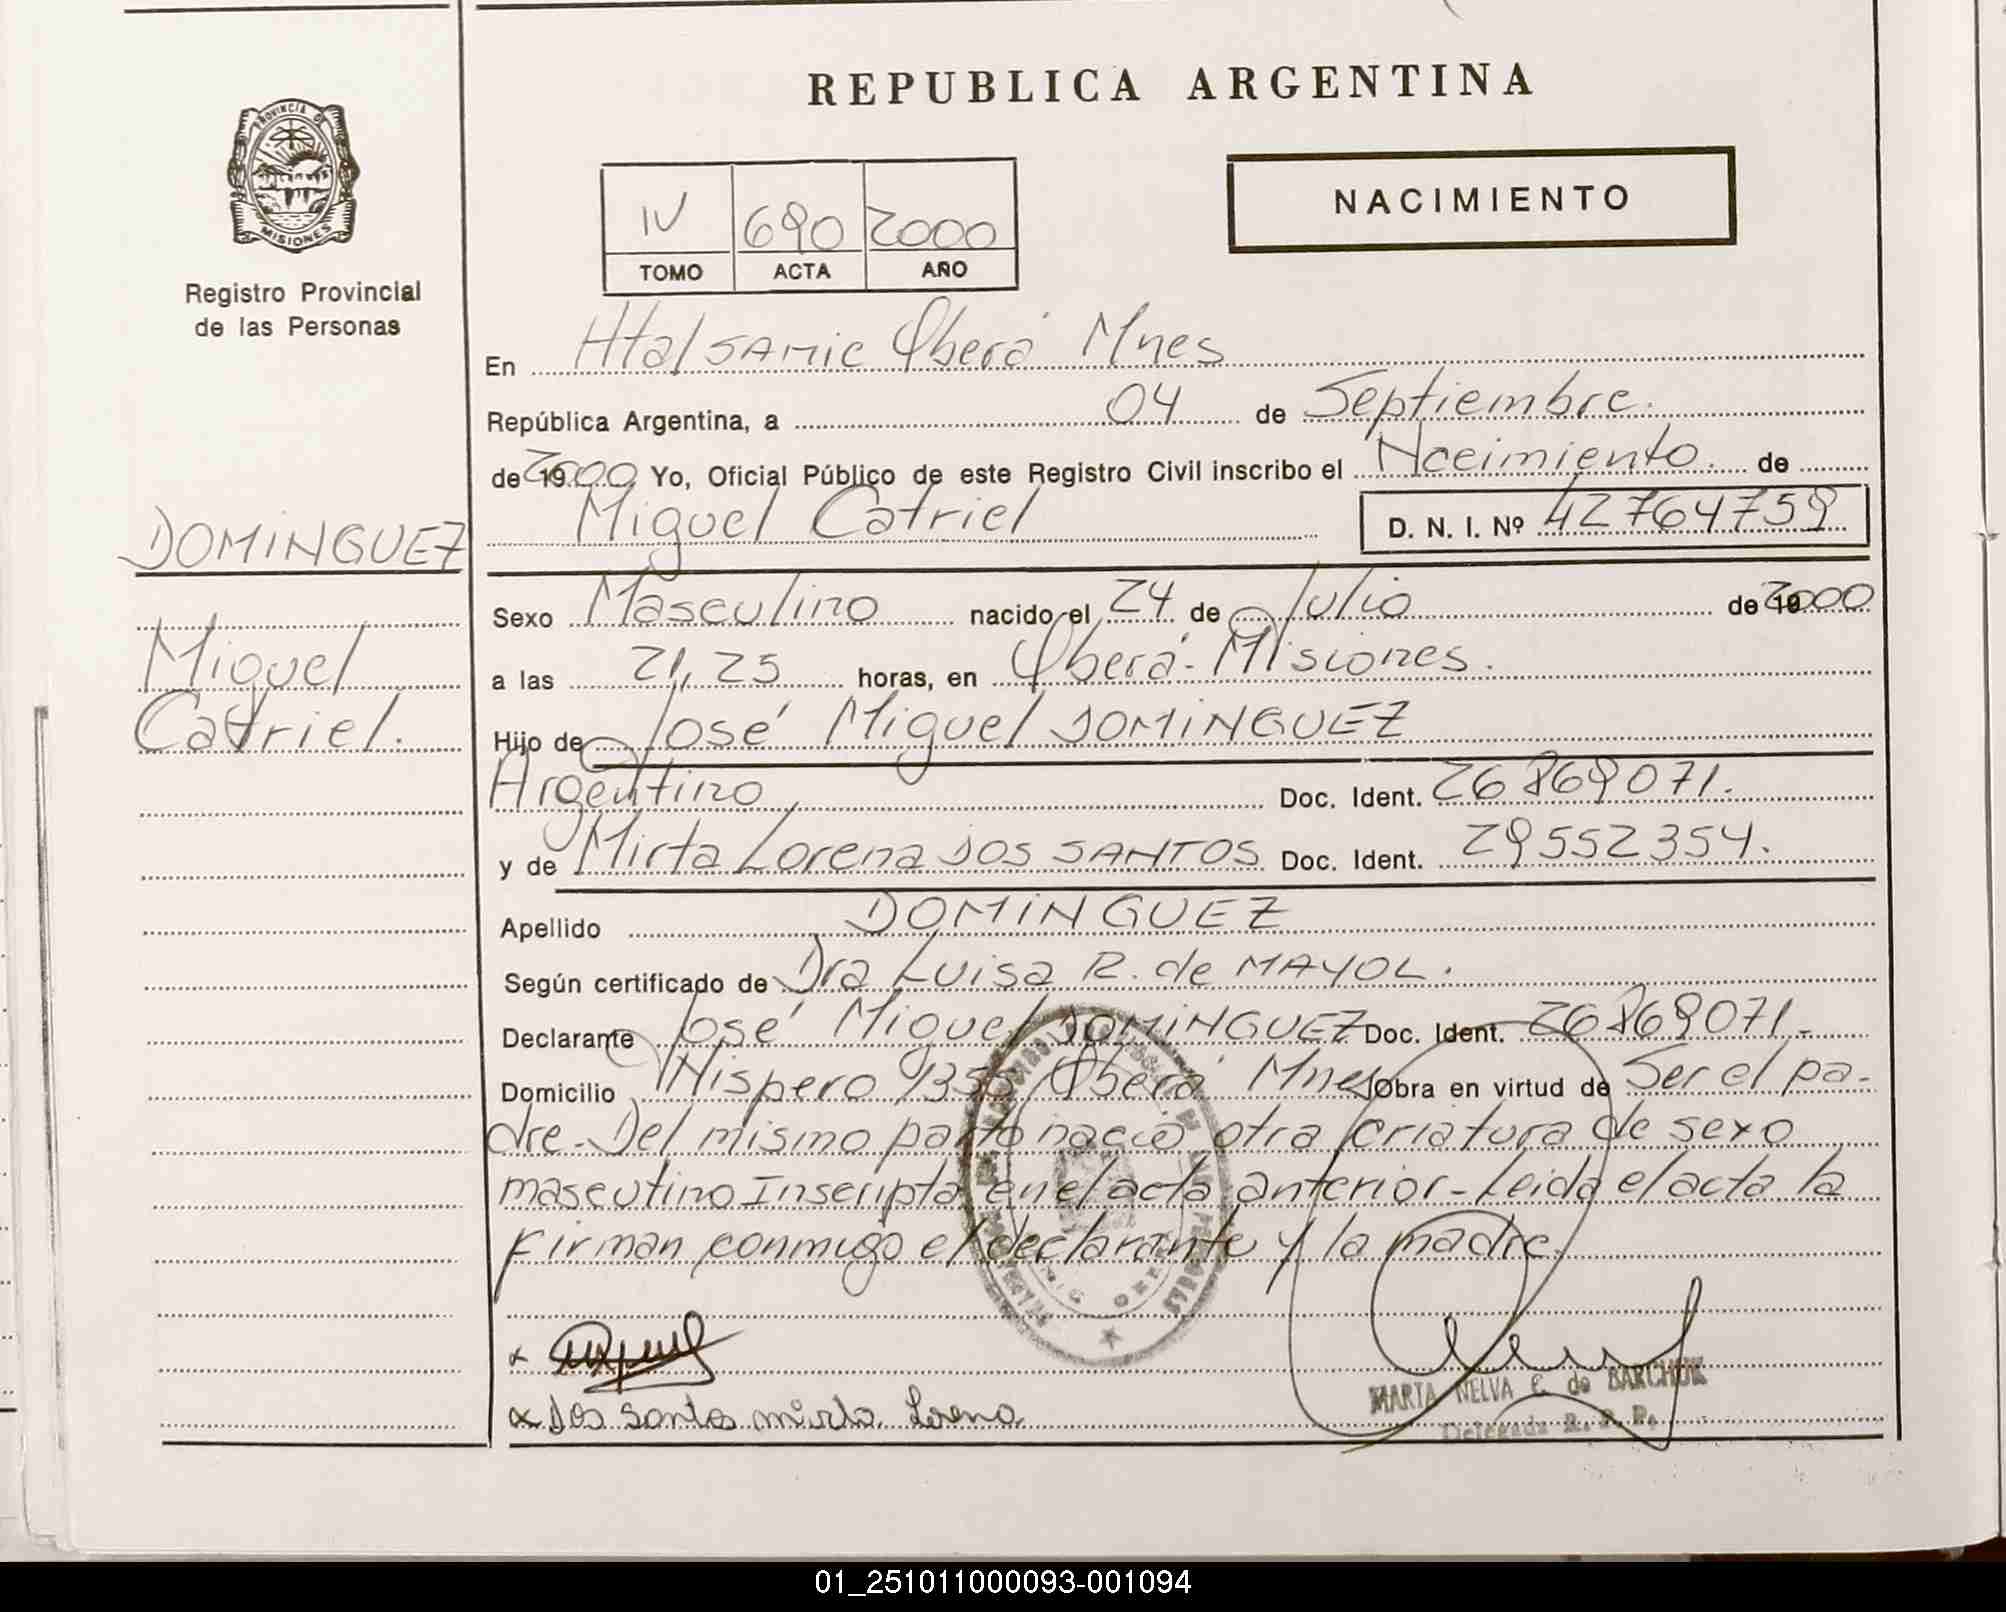 REPUBLICA ARGENTINA
PROVINCIA DE
MISIONES
Registro Provincial
de las Personas
NACIMIENTO
IV 690 2000
TOMO ACTA AÑO
En Htal SAMIC Oberá Mnes
República Argentina, a 04 de Septiembre.
de 2000 Yo, Oficial Público de este Registro Civil inscribo el Nacimiento. de
Miguel Catriel D. N. I. Nº 42764759
DOMINGUEZ
Miguel
Catriel.
Sexo Masculino nacido el 24 de Julio de 2000
a las 21,25 horas, en Oberá - Misiones.
Hijo de José Miguel DOMINGUEZ
Argentino Doc. Ident. 26869071.
y de Mirta Lorena DOS SANTOS Doc. Ident. 29552354.
Apellido DOMINGUEZ
Según certificado de Dra Luisa R. de MAYOL.
Declarante José Miguel DOMINGUEZ Doc. Ident. 26869071.-
Domicilio Nispero 1355 Oberá Mnes Obra en virtud de Ser el pa-
dre - Del mismo parto nació otra criatura de sexo
masculino Inscripta en el acta anterior - Leida el acta la
firman conmigo el declarante y la madre.
x
x Dos Santos Mirta Lorena
MARTA NELVA C. de BARCHUK
Delegada R. P. P.
01_251011000093-001094